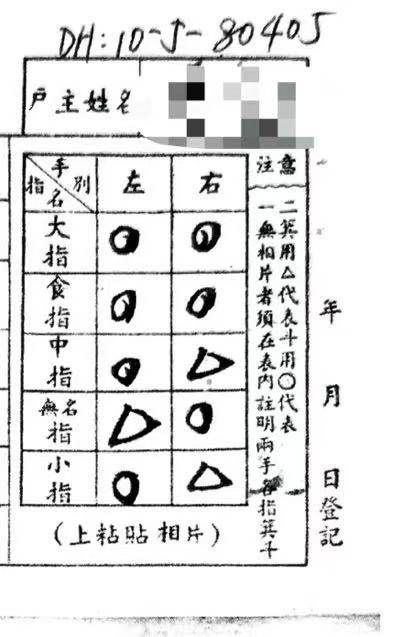 DH:10-5-80405
戶主姓名
手別 指名 左 右
大指 ○ ○
食指 ○ ○
中指 ○ △
無名指 △ ○
小指 ○ △
(上粘貼相片)
注意
一無相片者須在表內註明兩手各指箕斗
二箕用△代表斗用○代表
年 月 日登記